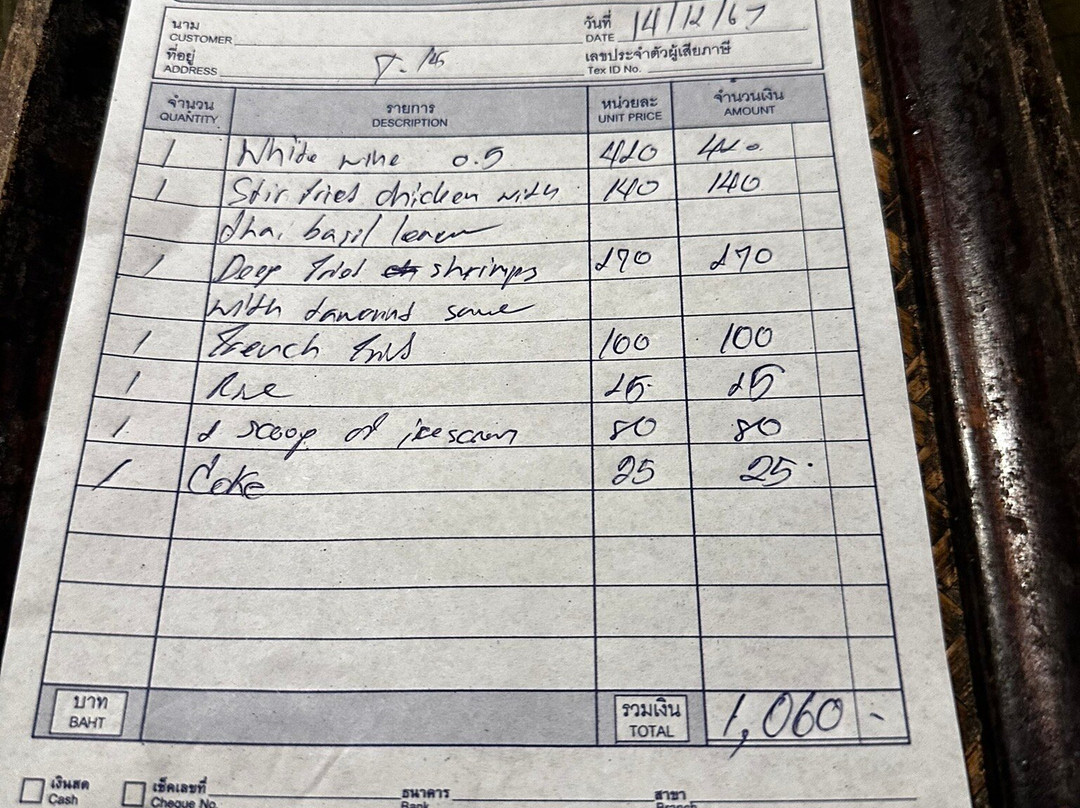 นาม
CUSTOMER
วันที่ 14/12/67
DATE
ที่อยู่
ADDRESS
เลขประจำตัวผู้เสียภาษี
Tex ID No.
จำนวน รายการ หน่วยละ จำนวนเงิน
QUANTITY DESCRIPTION UNIT PRICE AMOUNT
1 White wine 0.5 420 420
1 Stir fried chicken with 140 140
thai basil
1 Deep fried shrimps 270 270
with sauce
1 French 100 100
1 Rice 25 25
1 2 scoop of 80 80
1 Coke 25 25
บาท รวมเงิน
BAHT TOTAL 1,060 -
เงินสด เช็คเลขที่ ธนาคาร สาขา
Cash Cheque No. Bank Branch